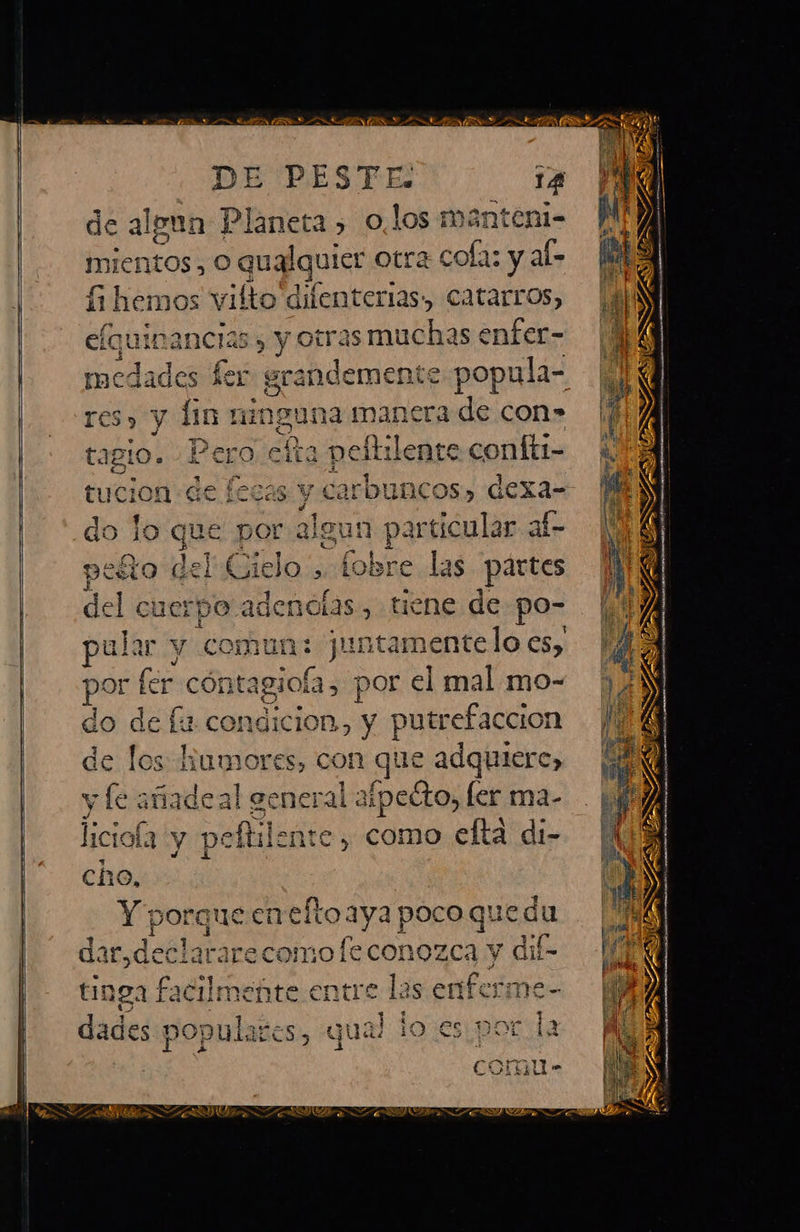 DE PESTE. 14
de algun Planeta, o los manteni-
mientos, o qualquier otra cosa: y aſ-
ſi hemos viſto diſenterias, catarros,
eſquinancias, y otras muchas enfer-
medades ſer grandemente popula-
res, y ſin ninguna manera de con-
tagio. Pero eſta peſtilente conſti-
tucion de ſecas y carbuncos, dexa-
do lo que por algun particular aſ-
pecto del Cielo, ſobre las partes
del cuerpo adenoſas, tiene de po-
pular y comun: juntamente lo es,
por ſer cõntagioſa, por el mal mo-
do de ſu condicion, y putrefaccion
de los humores, con que adquiere,
y ſe añade al general aſpecto, ſer ma-
licioſa y peſtilente, como eſtà di-
cho.
Y porque en eſto aya poco que du
dar, declarare como ſe conozca y diſ-
tinga facilmente entre las enferme-
dades populares, qual lo es por la
comu-